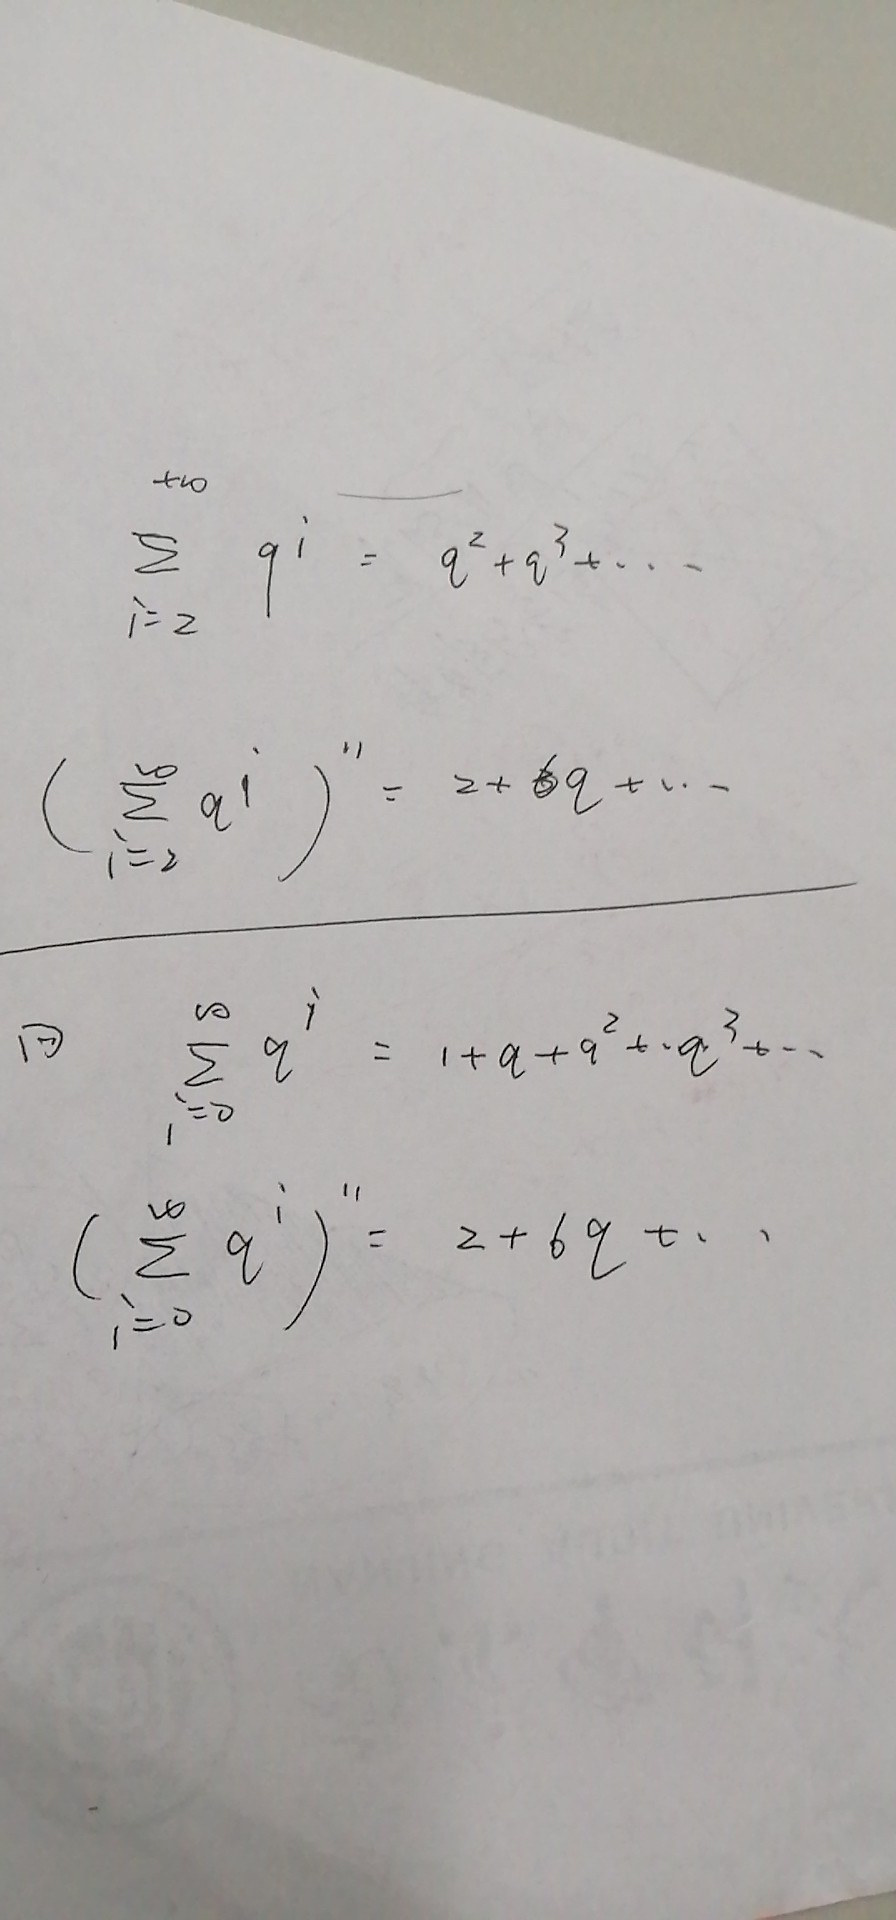 +∞
∑ q^i = q^2+q^3+....
i=2
(∑_{i=2}^{∞} q^i)'' = 2+6q+...
∑_{i=0}^{∞} q^i = 1+q+q^2+.q^3+...
(∑_{i=0}^{∞} q^i)'' = 2+6q+..